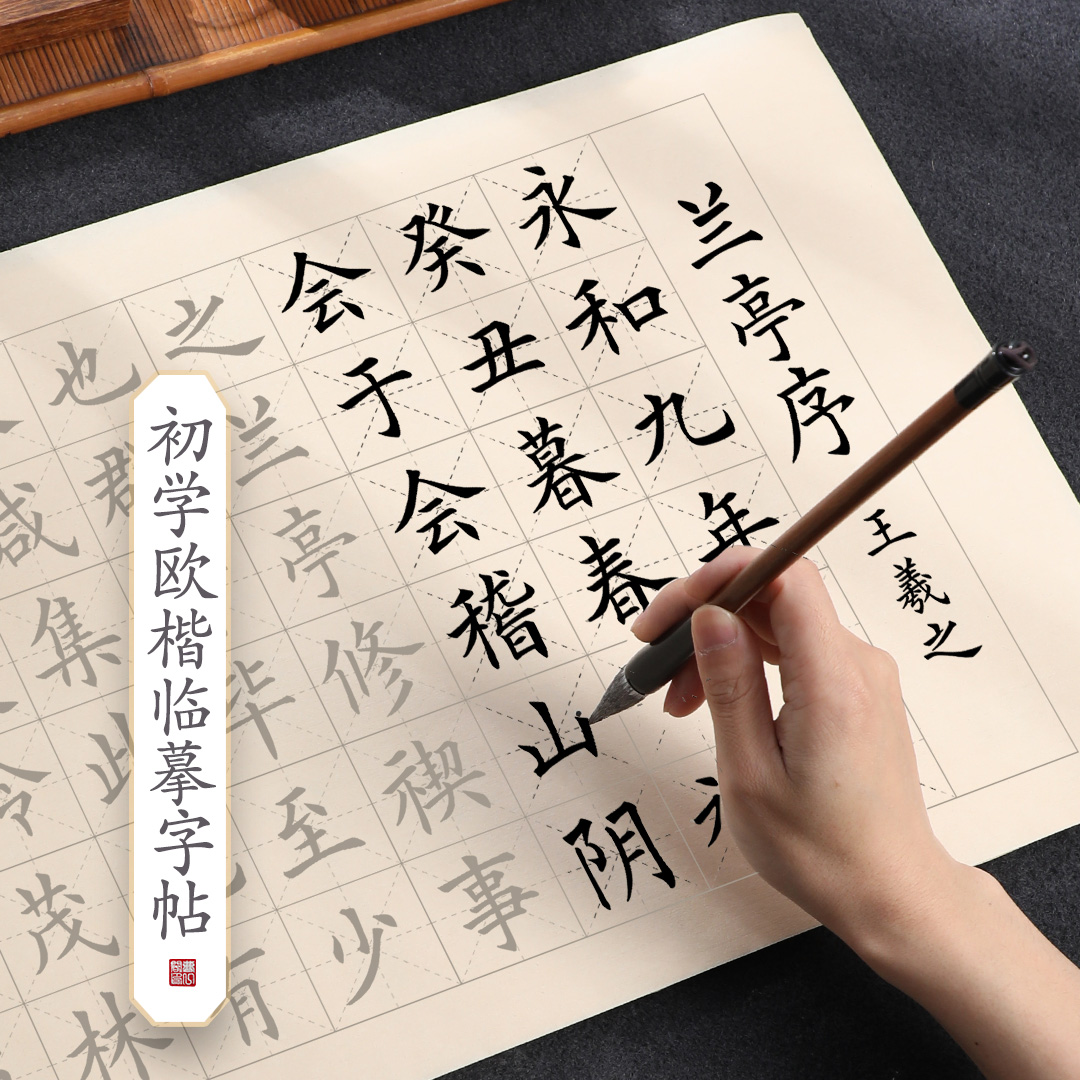 兰亭序
王羲之
永和九年
癸丑暮春
会于会稽山阴
之兰亭修禊事
也群毕至少
咸集此有
茂林
初学欧楷临摹字帖